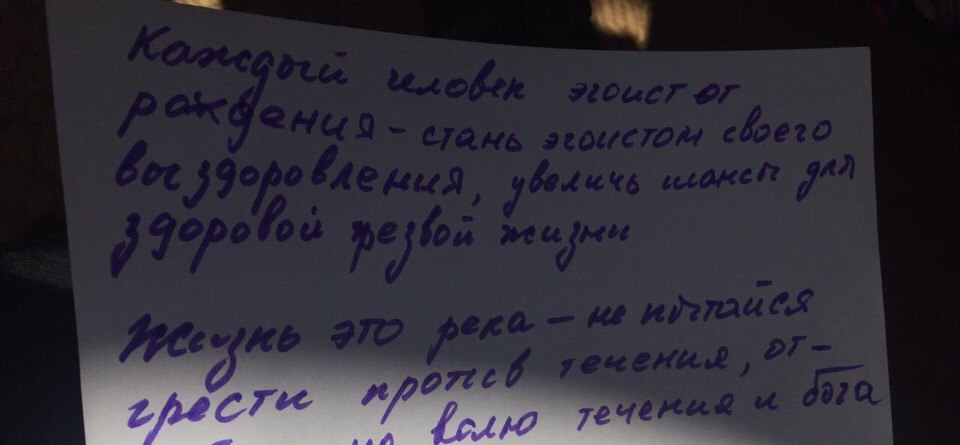 Каждый человек эгоист от
рождения - стань эгоистом своего
выздоровления, увеличь шансы для
здоровой трезвой жизни
Жизнь это река - не пытайся
грести против течения, от-
на волю течения и бога